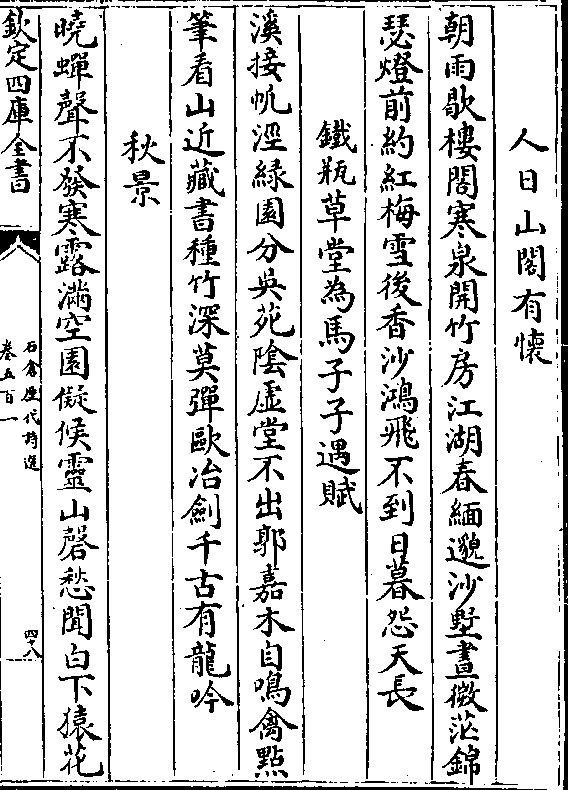 人日山閣有懷
朝雨歇樓閣寒泉開竹房江湖春緬邈沙墅晝微茫錦
瑟燈前約紅梅雪後香沙鴻飛不到日暮怨天長
鐵瓶草堂為馬子子遇賦
溪接帆涇綠園分吳苑陰虛堂不出郭嘉木自鳴禽點
筆看山近藏書種竹深莫彈歐冶劍千古有龍吟
秋景
曉蟬聲不發寒露滿空園儗候靈山磬愁聞白下猿花
欽定四庫全書
石倉歷代詩選
卷五百一
四十八